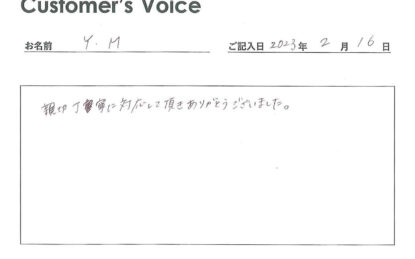 Customer's Voice
お名前 Y. M ご記入日 2023年 2月 16日
親切丁寧に対応して頂きありがとうございました。